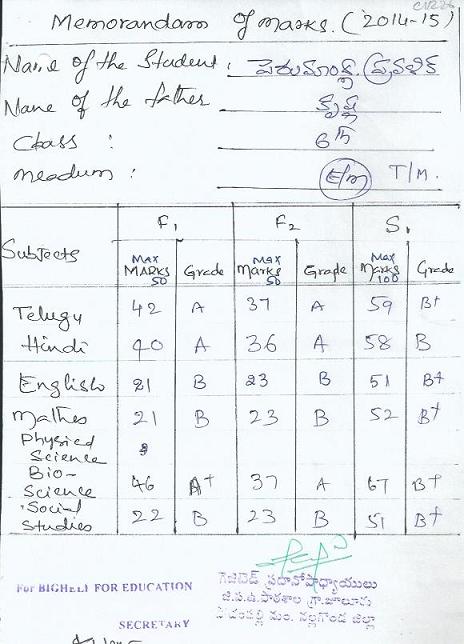 CV226
Memorandam of marks. (2014-15)
Name of the Student :
Name of the father
Class : 6th
Meadum : E/m T/M.
F1 F2 S1
Subjects MAX MARKS 50 Grade MAX Marks 50 Grade MAX Marks 100 Grade
Telugu 42 A 37 A 59 B+
Hindi 40 A 36 A 58 B
English 21 B 23 B 51 B+
Mathes 21 B 23 B 52 B+
Physical
Science
Bio-
Science 46 A+ 37 A 67 B+
Social
Studies 22 B 23 B 51 B+
For BIGHELP FOR EDUCATION
SECRETARY
గెజిటెడ్ ప్రధానోపాధ్యాయులు
జి.ప.ఉ.పాఠశాల గ్రా.జాలూరు
మం. నల్లగొండ జిల్లా